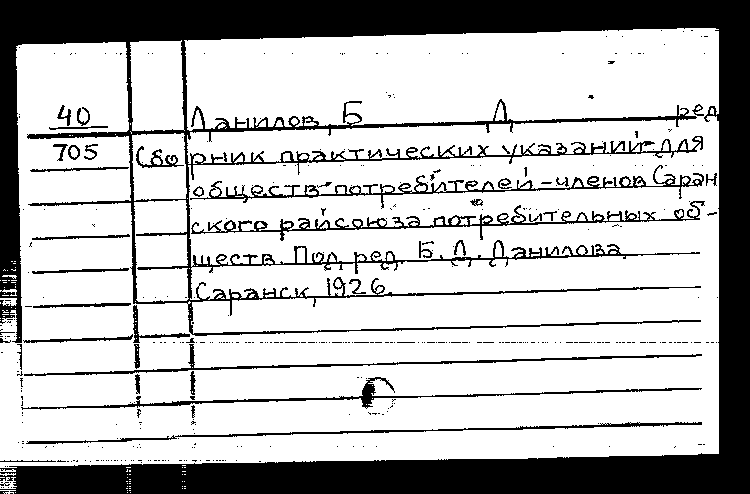 40 Данилов, Б Д, ред
705 Сборник практических указаний для
обществ потребителей-членов Саран
ского райсоюза потребительных об-
ществ. Под ред. Б. Д. Данилова.
Саранск, 1926.